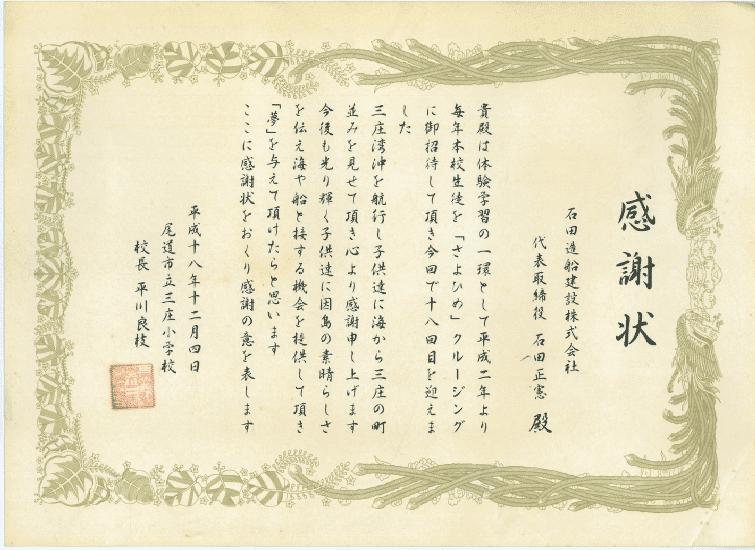 感謝状
石田造船建設株式会社
代表取締役 石田正憲 殿
貴殿は体験学習の一環として平成二年より
毎年本校生徒を「さよひめ」クルージング
に御招待して頂き今回で十八回目を迎えま
した
三庄湾沖を航行し子供達に海から三庄の町
並みを見せて頂き心より感謝申し上げます
今後も光り輝く子供達に因島の素晴らしさ
を伝え海や船と接する機会を提供して頂き
「夢」を与えて頂けたらと思います
ここに感謝状をおくり感謝の意を表します
平成十八年十二月四日
尾道市立三庄小学校
校長 平川良枝